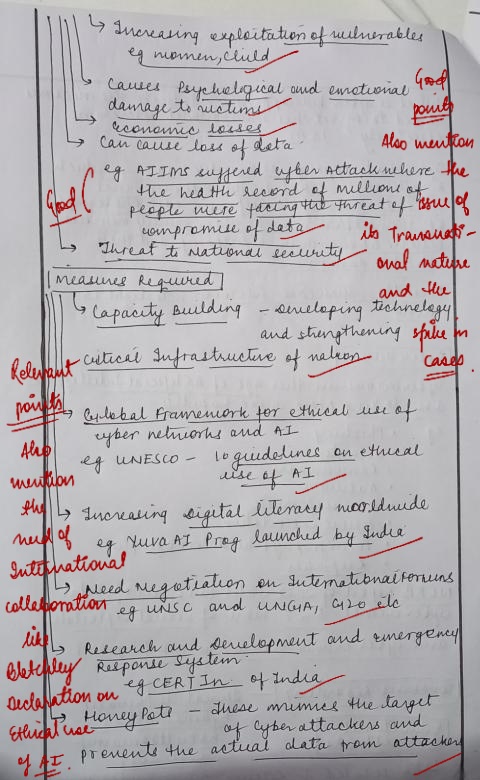 ↳ Increasing exploitation of vulnerables
eg women, child
↳ Causes Psychological and emotional
damage to victims
↳ economic losses
↳ Can cause loss of data
eg AIIMS suffered cyber Attack where the
the health record of millions of
people were facing the threat of
compromise of data
↳ Threat to National security
Good
Good
points
Also mention
the
issue of
its Transnati-
onal nature
and the
spike in
cases.
Measures Required
↳ Capacity Building - Developing technology
and strengthening
critical Infrastructure of nation
↳ Global Framework for ethical use of
cyber networks and AI
eg UNESCO - 10 guidelines on ethical
use of AI
↳ Increasing Digital literacy worldwide
eg Yuva AI Prog launched by India
↳ Need Negotiation on International Forums
eg UNSC and UNGA, G20 etc
↳ Research and Development and emergency
Response System
eg CERT In of India
↳ Honey Pots - These mimics the target
of Cyber attackers and
prevents the actual data from attackers
Relevant
points
Also
mention
the
need of
International
collaboration
like
Bletchley
Declaration on
Ethical use
of AI.